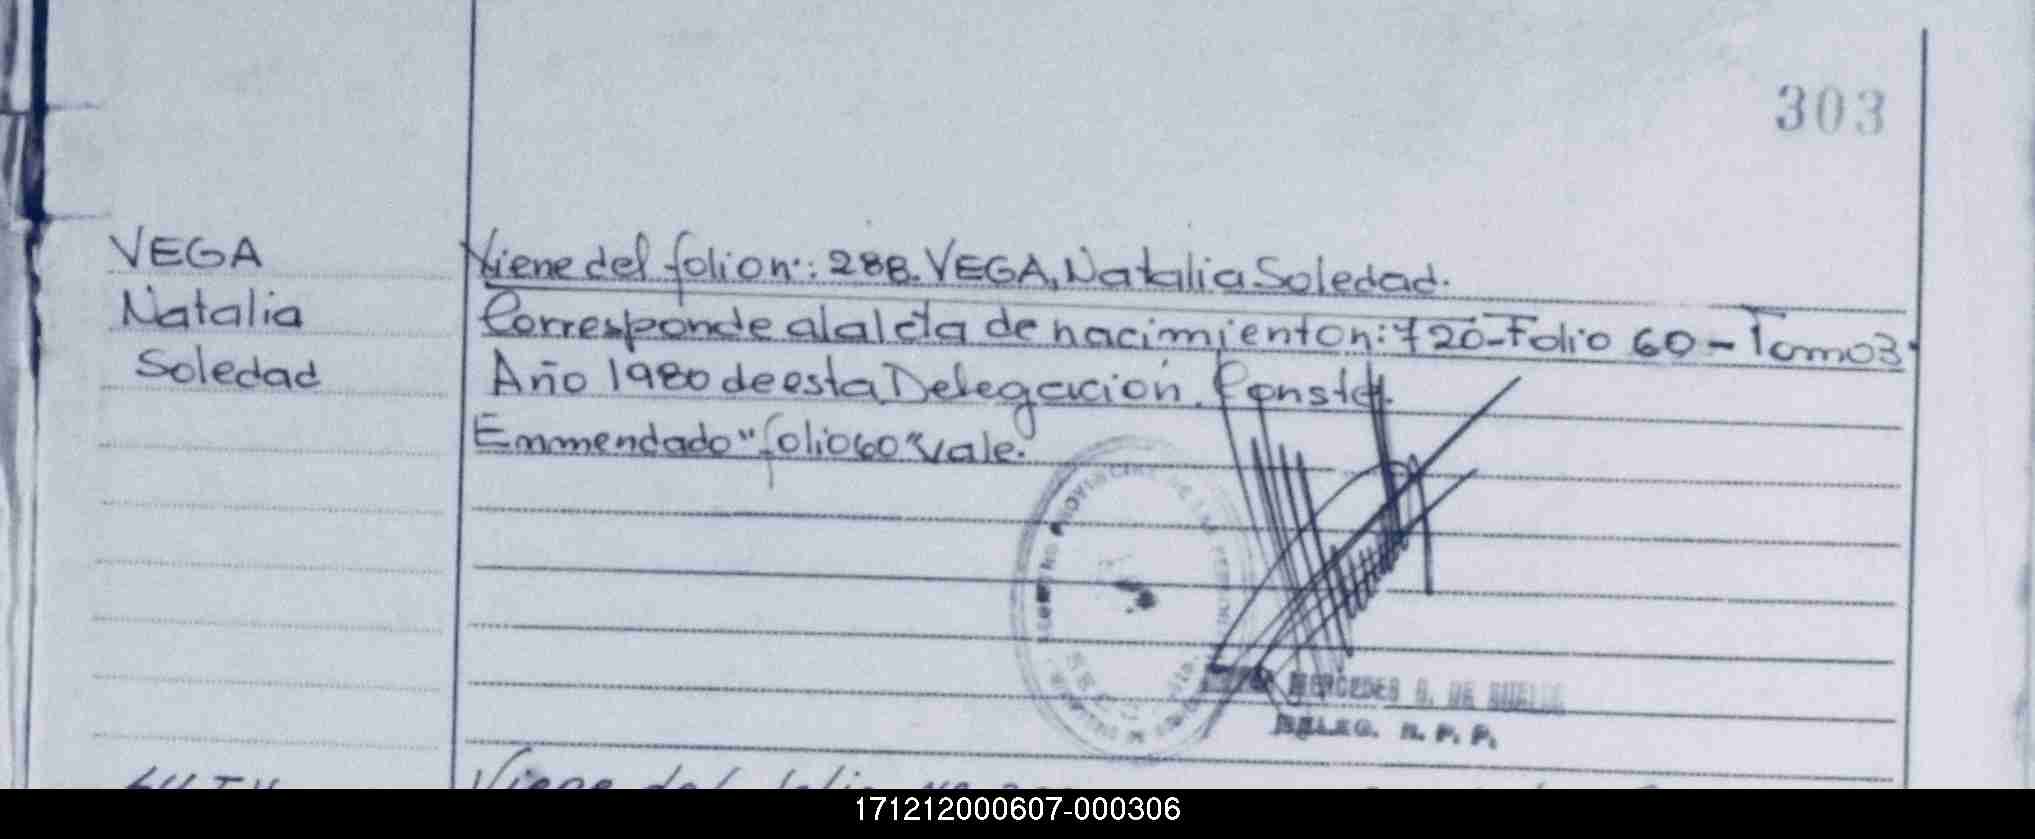 303
VEGA
Natalia
Soledad
Viene del folio nº: 288. VEGA, Natalia Soledad.
Corresponde al acta de nacimiento n: 720 - Folio 60 - Tomo 3.
Año 1980 de esta Delegación. Consta.
Emmendado "folio 60" vale.
MERCEDES G. DE
DELEG. R. P. P.
Viene del folio Nº
171212000607-000306